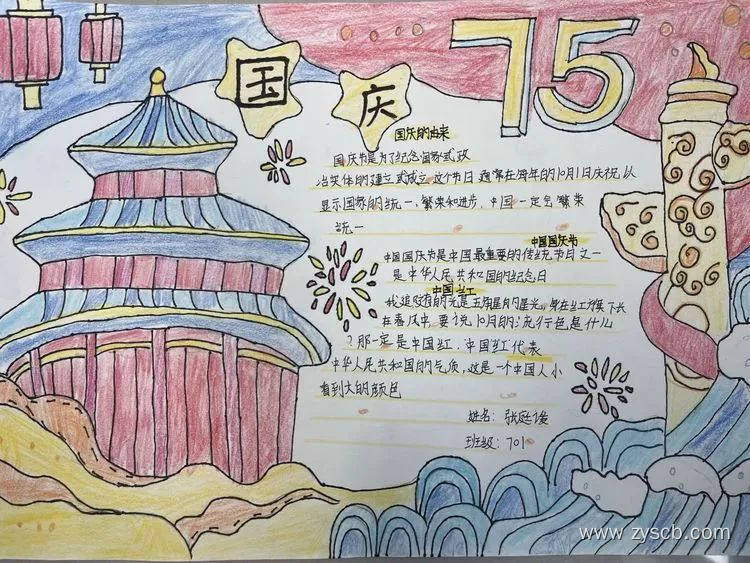 国庆
75
国庆的由来
国庆节是为了纪念国家式政
治实体的建立式成立,这个节日通常在每年的10月1日庆祝,以
显示国家的统一、繁荣和进步,中国一定会繁荣
统一
中国国庆节
中国国庆节是中国最重要的传统节日之一
是中华人民共和国的纪念日
中国红
我追的光是五角星的星光,身在红旗下长
在春风中,要说10月的流行色是什么
?那一定是中国红,中国红代表
中华人民共和国的气质,这是一个中国人小
看到大的颜色
姓名:张廷俊
班级:701
www.zyscb.com